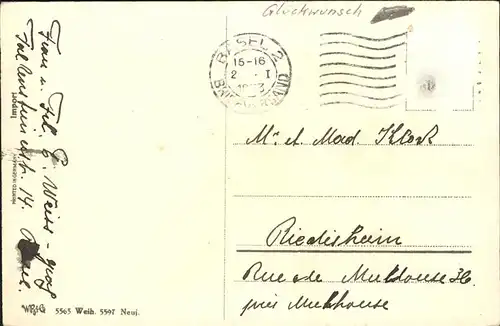 Glückwunsch
BASEL 2
15-16
2. - I
M. et Mad. Klock
Riedisheim
Rue de Mulhouse
près Mulhouse
Frau u. Frl. Weiss-
14.
Import
WR&G 5565 Weih. 5597 Neuj.